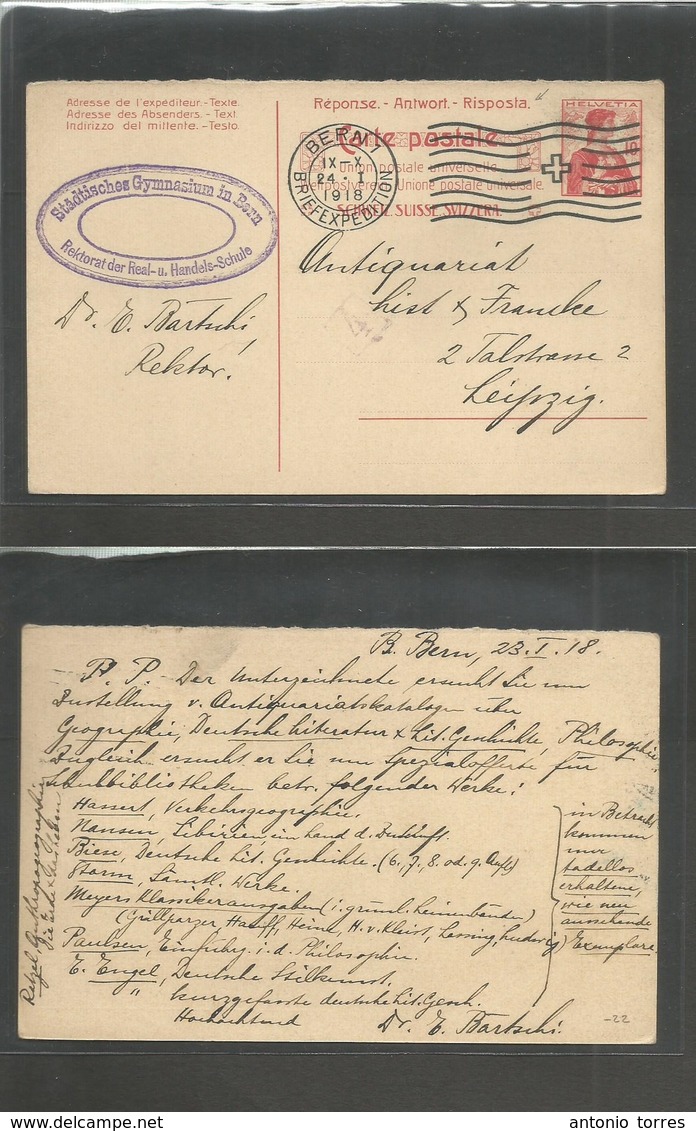 Adresse de l'expéditeur. - Texte.
Adresse des Absenders. - Text.
Indirizzo del mittente. - Testo.
Réponse. - Antwort. - Risposta.
Carte postale
Union postale universelle
Weltpostverein. Unione postale universale.
SCHWEIZ. SUISSE. SVIZZERA.
HELVETIA
BERN
IX-X
24.I
1918
BRIEFEXPEDITION
Städtisches Gymnasium in Bern
Rektorat der Real- u. Handels-Schule
Dr. E. Bärtschi,
Rektor.
Antiquariat
List & Francke
2 Talstrasse 2
Leipzig.
B. Bern, 23.I.18.
P. P. Der Unterzeichnete ersucht Sie um
Zustellung v. Antiquariatskatalogen über
Geographie, Deutsche Literatur & Lit. Geschichte, Philosophie.
Zugleich ersucht er Sie um Spezialofferte für
Schulbibliotheken betr. folgender Werke:
Hassert, Verkehrsgeographie.
Nansen, Sibirien, ein Land d. Zukunft.
Biese, Deutsche Lit. Geschichte. (6., 7., 8. od. 9. Aufl.)
Storm, Sämtl. Werke.
Meyers Klassikerausgaben
(Grillparzer, Hauff, Heine, H. v. Kleist, Lessing, Ludwig)
Paulsen, Einführg. i. d. Philosophie.
E. Engel, Deutsche Stilkunst.
" kurzgefasste deutsche Lit. Gesch.
Hochachtend
Dr. E. Bärtschi.
in Betracht
kommen
nur
tadellos
erhaltene,
wie neu
aussehende
Exemplare
Ratzel, Anthropogeographie
-22
antonio torres